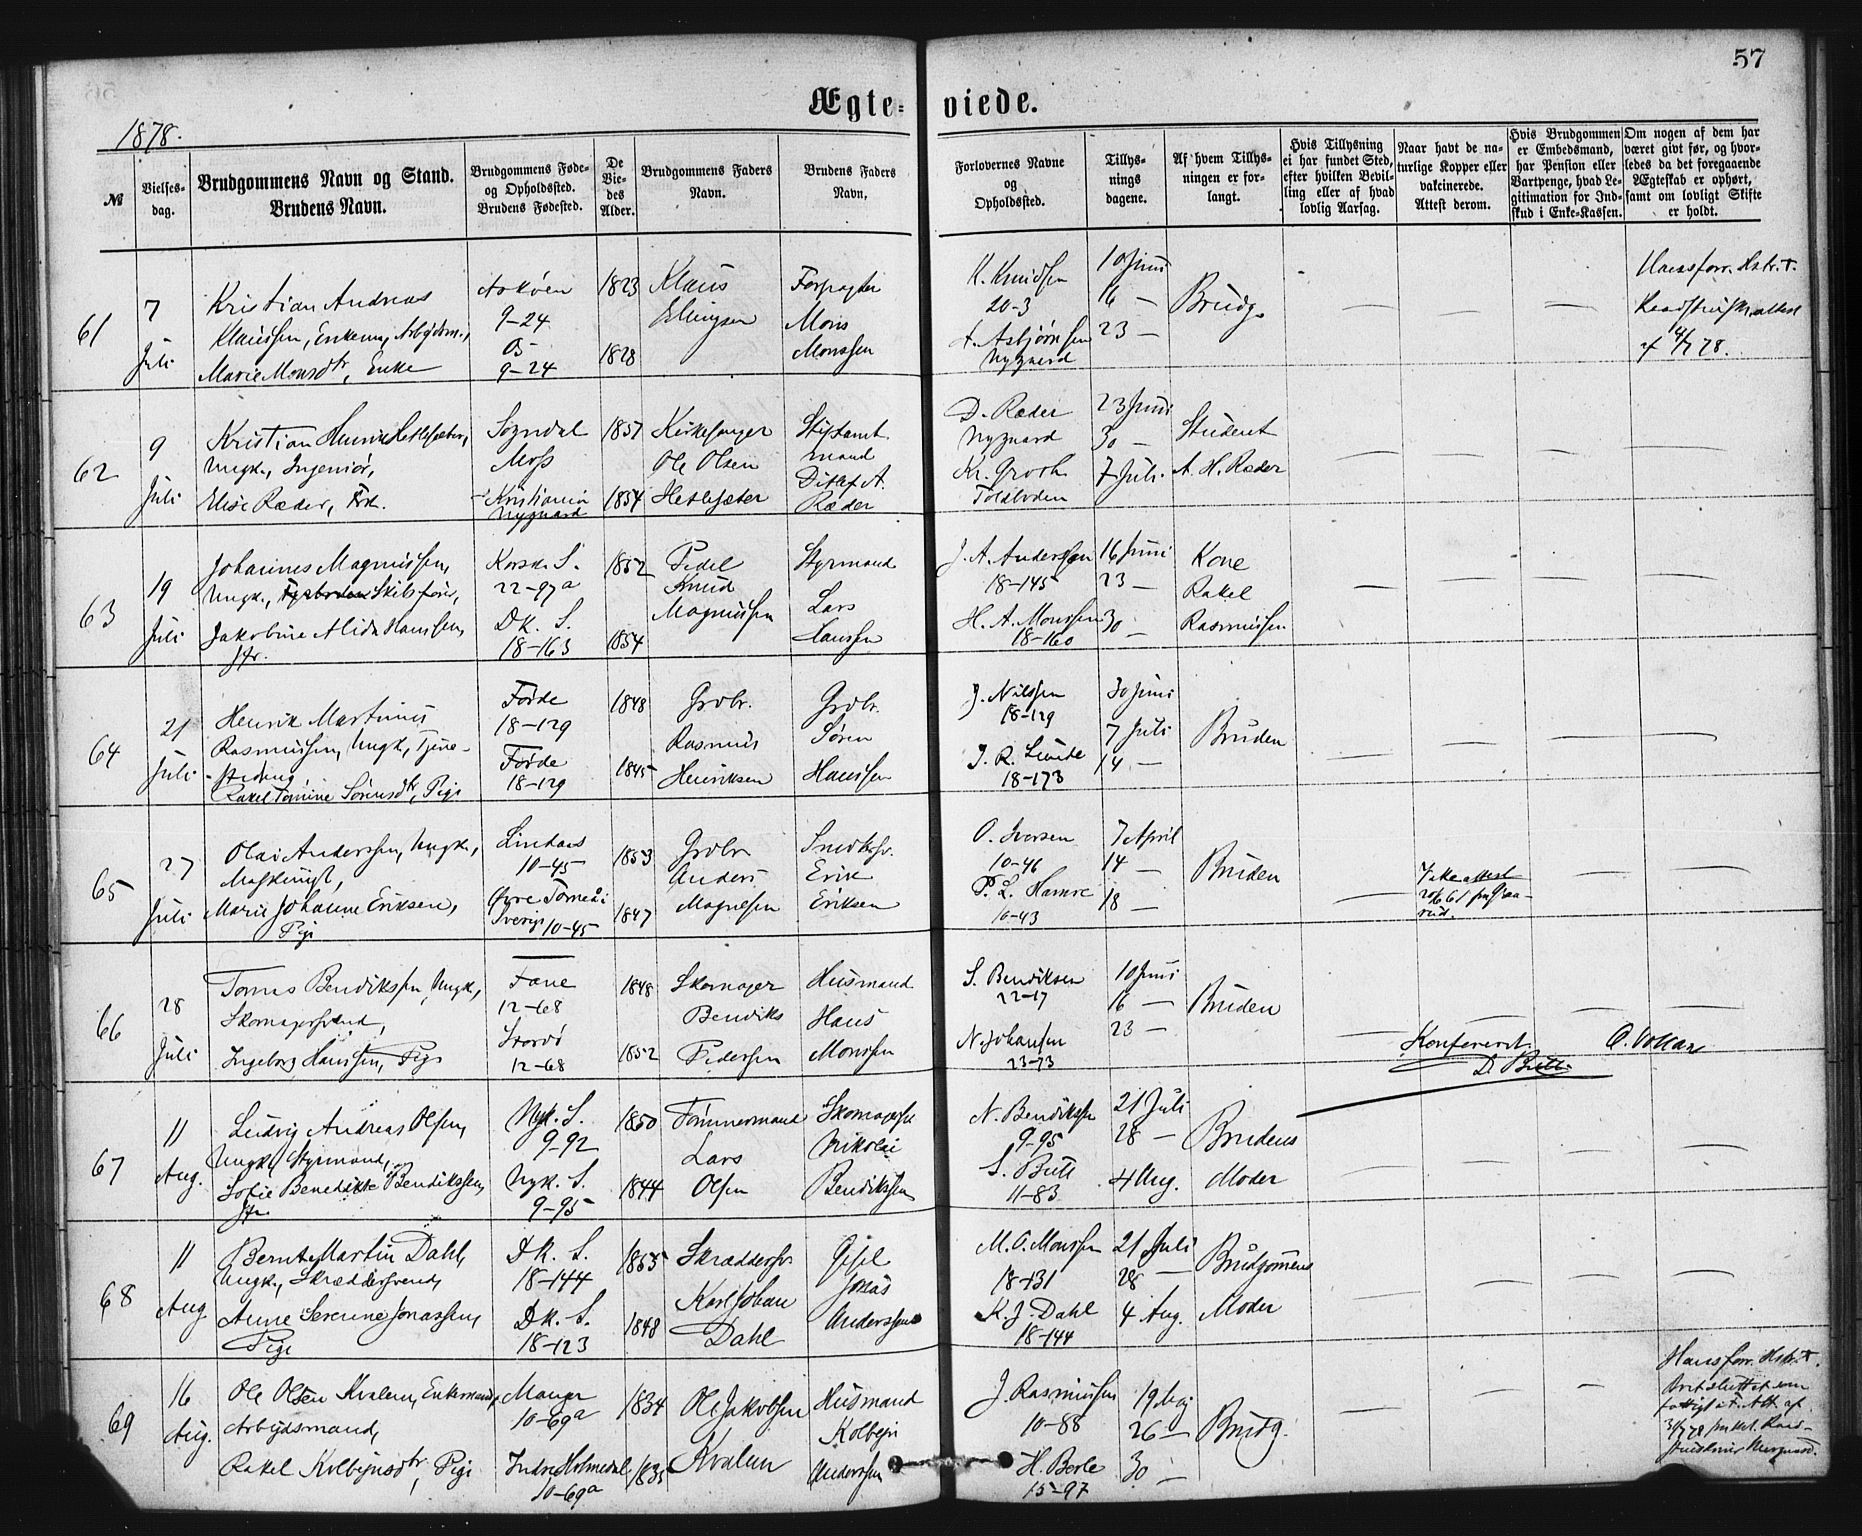 57
Ægte- viede.
1878.
№
Vielses-
dag.
Brudgommens Navn og Stand.
Brudens Navn.
Brudgommens Føde-
og Opholdssted.
Brudens Fødested.
De
Vie-
des
Alder.
Brudgommens Faders
Navn.
Brudens Faders
Navn,
Forlovernes Navne
og
Opholdssted.
Tillys-
nings
dagene.
Af hvem Tillys-
ningen er for-
langt.
Hvis Tillysning
ei har fundet Sted,
efter hvilken Bevil-
ling eller af hvad
lovlig Aarsag.
Naar havt de na-
turlige Kopper eller
vakcinerede.
Attest derom.
Hvis Brudgommen
er Embedsmand,
har Pension eller
Vartpenge, hvad Le-
gitimation for Ind-
skud i Enke-Kassen.
Om nogen af dem har
været givt før, og hvor-
ledes da det foregaaende
Ægteskab er ophørt,
samt om lovligt Skifte
er holdt.
61
7
Juli
Kristian Andreas
Klaussen, Enkem, Arbejdsm.,
Marie Monsdtr, Enke
Askøen
9-24
Os
9-24
1823
1828
Klaus
Ellingsen
Forpagter
Mons
Monssen
K. Knudsen
20-3
A. Asbjørnsen
Nygaard
10 Juni
16 —
23 —
Brudg.
4/7 78.
62
9
Juli
Kristian Henrik Hetlesæter,
Ungk., Ingeniør,
Elise Ræder, Frk.
Sogndal
Moss
Kristiania
Nygaard
1851
1854
Kirkesanger
Ole Olsen
Hetlesæter
Stiftamt
mand
Ditlef A.
Ræder
D. Ræder
Nygaard
Kr. Groth
Toldboden
23 Juni
30 —
7 Juli
Student
A. H. Ræder
63
19
Juli
Johannes Magnussen,
Ungk., Skibsfører,
Jakobine Alida Hanssen,
Jfr.
Korsk. S.
22-97a
Dk. S.
18-163
1852
1854
Pedel
Knud
Magnussen
Styrmand
Lars
Hanssen
J. A. Anderssen
18-145
H. A. Monssen
18-160
16 Juni
23 —
30 —
Kone
Rakel
Rasmussen
64
21
Juli
Henrik Martinus
Rasmussen, Ungk., Tjene-
steding
Rakel Tomine Sørensdtr, Pige
Førde
18-129
Førde
18-129
1848
1845
Grdbr.
Rasmus
Henriksen
Grdbr.
Søren
Hanssen
J. Nilssen
18-129
J. R. Lunde
18-173
30 Juni
7 Juli
14 —
Bruden
65
27
Juli
Olai Anderssen, Ungk.,
Maskinist,
Marie Johanne Eriksen,
Pige
Lindaas
10-45
Øvre Torneå i
Sverige 10-45
1853
1847
Grdbr
Anders
Magnesen
Erik
Eriksen
O. Iversen
10-46
P. L. Hamre
10-43
7 April
14 —
18 —
Bruden
66
28
Juli
Tomas Bendikssen, Ungk.,
Skomagersvend,
Ingeborg Hanssen, Pige
Fane
12-68
Stordø
12-68
1848
1852
Skomager
Bendiks
Pederssen
Husmand
Hans
Monssen
S. Bendiksen
22-17
N. Johansen
23-73
10 Juni
16 —
23 —
Bruden
Konfereret.
67
11
Aug.
Ludvig Andreas Olsen,
Ungk., Styrmand,
Sofie Benedikte Bendikssen,
Jfr.
Nyk. S.
9-92
Nyk. S.
9-95
1850
1844
Tømmermand
Lars
Olsen
Nikolai
Bendikssen
N. Bendikssen
9-95
S. Bull
11-83
21 Juli
28 —
4 Aug.
Brudens
Moder
68
11
Aug
Bernt Martin Dahl,
Ungk., Skræddersvend,
Anne Severine Jonassen,
Pige
Dk. S.
18-144
Dk. S.
18-123
1855
1848
Skræddersv.
Karl Johan
Dahl
Jonas
Anderssen
M. O. Monssen
18-131
K. J. Dahl
18-144
21 Juli
28 —
4 Aug.
Brudgommens
Moder
69
16
Aug.
Ole Olsen Kvalem, Enkemand,
Arbejdsmand,
Rakel Kolbejnsdtr, Pige
Manger
10-69a
Indre Holmedal
10-69a
1834
1835
Ole Jakobsen
Kvalem
Husmand
Kolbejn
Anderssen
J. Rasmussen
10-88
H. Berle
15-97
19 Maj
26 —
30 —
Brudg.